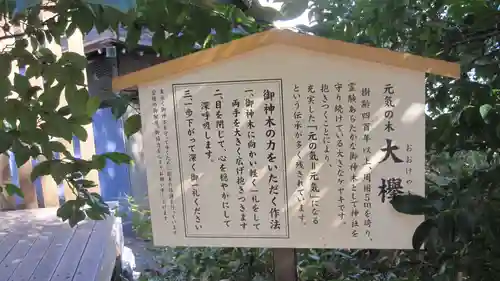 元気の木 大欅
おおけやき
樹齢四百年以上、周囲5mを誇り、
霊験あらたかな神社を
守り続けている大きなケヤキです。
抱きつくことにより、
充実した「元の気＝元気」になる
という伝承が多く残されています。
御神木の力をいただく作法
一、御神木に向かい軽く一礼をして
両手を大きく広げ抱きつきます
二、目を閉じて、心を穏やかにして
深呼吸します。
三、一歩下がって深く御一礼ください